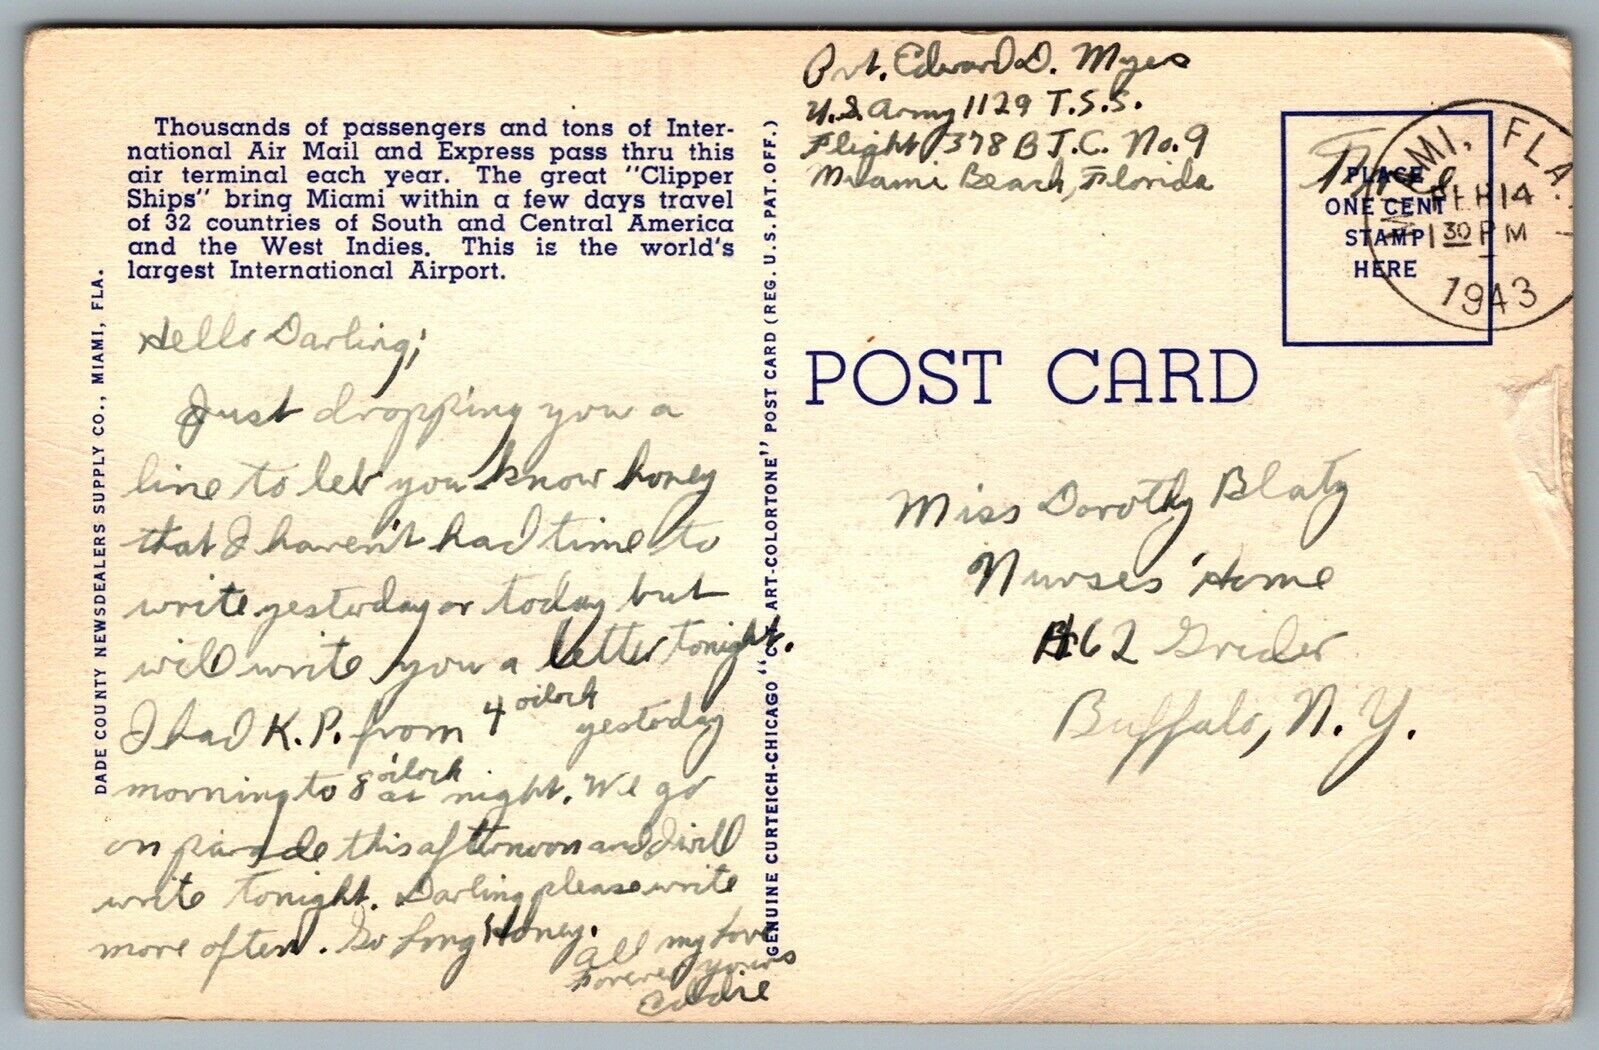 Thousands of passengers and tons of Inter-
national Air Mail and Express pass thru this
air terminal each year. The great "Clipper
Ships" bring Miami within a few days travel
of 32 countries of South and Central America
and the West Indies. This is the world's
largest International Airport.
DADE COUNTY NEWSDEALERS SUPPLY CO., MIAMI, FLA.
Hello Darling;
Just dropping you a
line to let you know honey
that I haven't had time to
write yesterday or today but
will write you a letter tonight.
I had K.P. from 4 o'clock yesterday
morning to 8 o'clock at night. We go
on parade this afternoon and I will
write tonight. Darling please write
more often. So Long Honey.
All my Love
Forever yours
Eddie
GENUINE CURTEICH-CHICAGO "C.T. ART-COLORTONE" POST CARD (REG. U.S. PAT. OFF.)
Pvt. Edward D. Myes
U.S. Army 1129 T.S.S.
Flight 378 B T.C. No. 9
Miami Beach, Florida
Free
PLACE
ONE CENT
STAMP
HERE
MIAMI, FLA.
FEB 14
1 30 PM
1943
POST CARD
Miss Dorothy Blatz
Nurses' Home
462 Grider
Buffalo, N.Y.